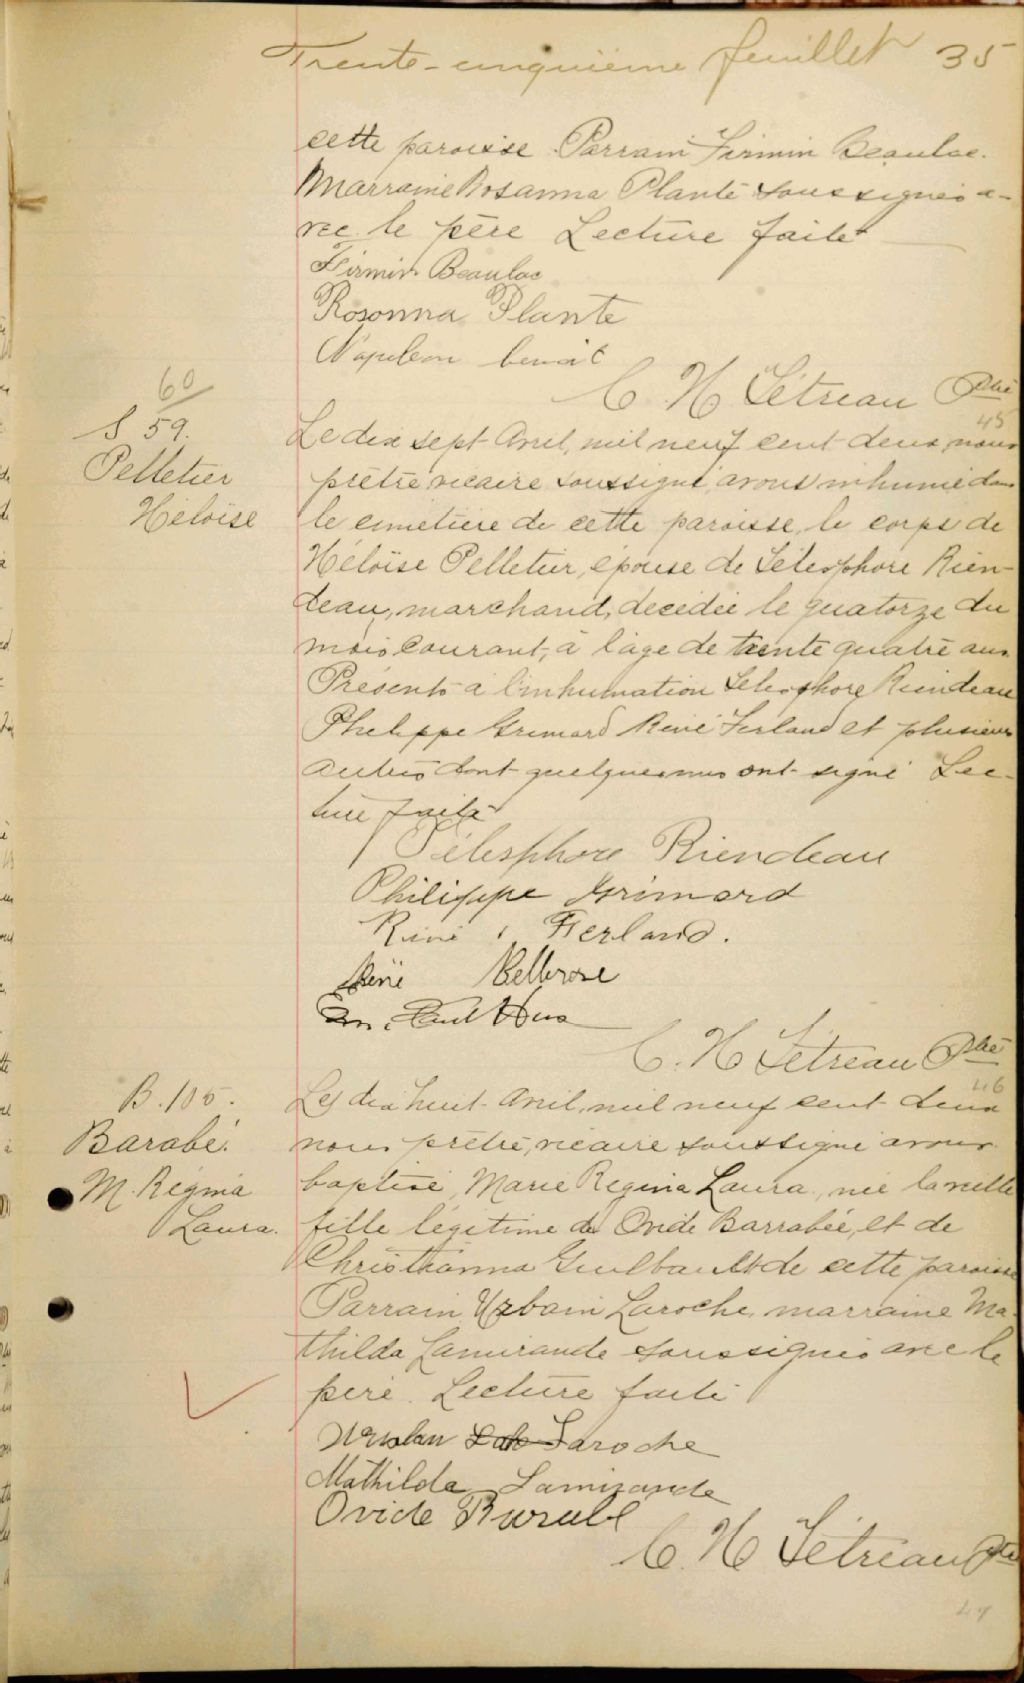 Trente-cinquième feuillet 35
cette paroisse. Parrain Firmin Beaulac.
Marraine Rosanna Plante soussignés a-
vec le père Lecture faite
Firmin Beaulac
Rosonna Plante
Napoleon benoit
C. H. Tétreau Ptre
60
S 59.
Pelletier
Héloïse
45
Le dix sept Avril, mil neuf cent deux, nous
prêtre vicaire soussigné, avons inhumé dans
le cimetière de cette paroisse, le corps de
Héloïse Pelletier, épouse de Télesphore Rien-
deau, marchand, décédée le quatorze du
mois courant, à l'âge de trente quatre ans
Présents à l'inhumation Télesphore Riendeau
Philippe Grimard René Ferland et plusieurs
autres dont quelques uns ont signé Lec-
ture faite
Télesphore Riendeau
Philippe Grimard
René Ferland.
René Bellerose
Paul Hus
C. H. Tétreau Ptre
B. 105.
Barabé.
M. Régina
Laura.
46
Le dix huit Avril, mil neuf cent deux
nous prêtre, vicaire soussigné avons
baptisé, Marie Regina Laura, née la veille
fille légitime de Ovide Barrabée, et de
Christianna Guilbault de cette paroisse
Parrain Urbain Laroche, marraine Ma-
thilda Lamirande soussignés avec le
père. Lecture faite
Laroche
Mathilda Lamirande
Ovide Barabé
C. H. Tétreau Ptre
47